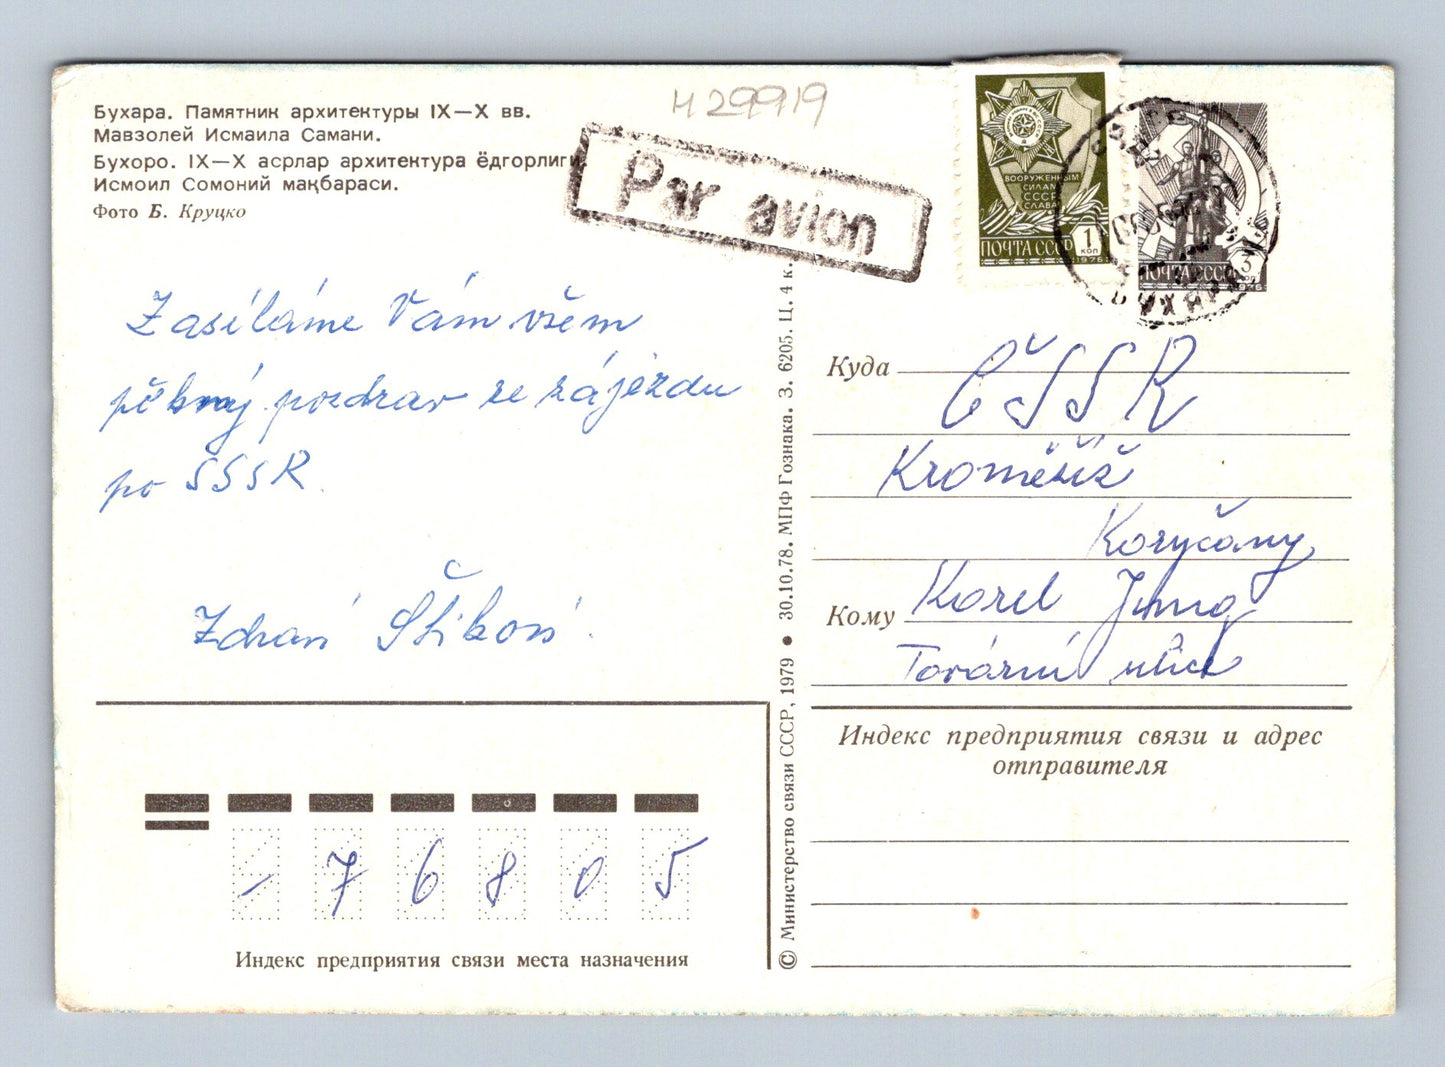 Бухара. Памятник архитектуры IX—X вв.
Мавзолей Исмаила Самани.
Бухоро. IX—X асрлар архитектура ёдгорлиги.
Исмоил Сомоний мақбараси.
Фото Б. Круцко
И29919
Par avion
ВООРУЖЕННЫМ
СИЛАМ
СССР
СЛАВА
ПОЧТА СССР
1 КОП
1976
ПОЧТА СССР
3
БУХАРА
Zasíláme Vám všem
pěkný pozdrav ze zájezdu
po SSSR
© Министерство связи СССР, 1979 ● 30.10.78. МПФ Гознака. З. 6205. Ц. 4 к.
Куда ČSSR
Kroměříž
Koryčany
Кому Karel
Tovární ulice
Индекс предприятия связи и адрес
отправителя
– 7 6 8 0 5
Индекс предприятия связи места назначения